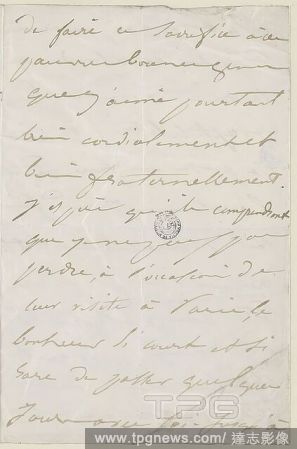 de faire ce sacrifice à ces
pauvres
que j'aime pourtant
bien cordialement et
bien fraternellement.
j'espère qu'ils comprendront
que je ne peux pas
perdre, à l'occasion de
leur visite à Paris, le
bonheur si court et si
rare de passer quelques
jours avec
TPG
www.tpgnews.com / 達志影像